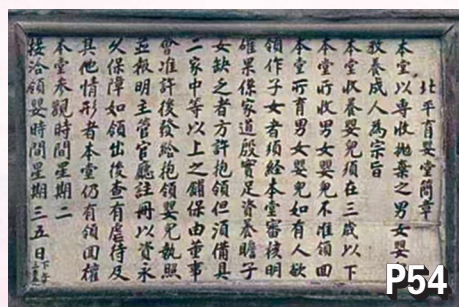 北平育嬰堂簡章
本堂以專收拋棄之男女嬰
教養成人為宗旨
本堂收養嬰兒須在三歲以下
本堂所收男女嬰兒不准領回
本堂所育男女嬰兒如有人欲
領作子女者須經本堂審核明
確果係家道殷實足資養贍子
女缺乏者方許抱領但須備具
二家中等以上之鋪保由董事
會准許後發給抱領嬰兒執照
並報明主管官廳註冊以資永
久保障如領出後查有虐待及
其他情形者本堂仍有領回權
本堂參觀時間星期二
接洽領嬰時間星期三五日下午
P54